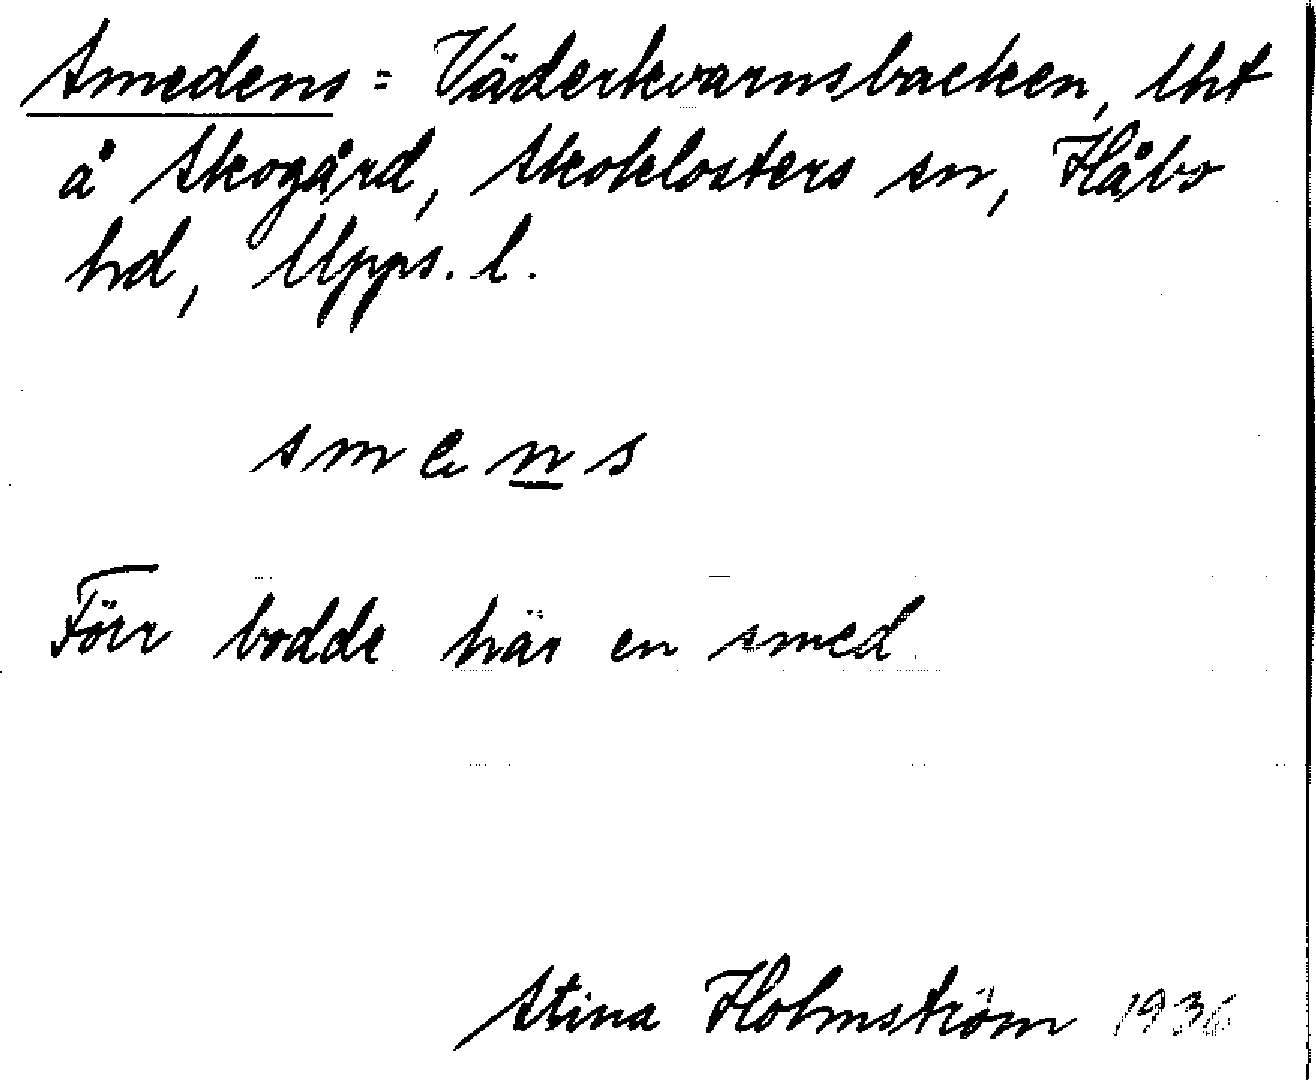 Smedens = Väderkvarnsbacken, lht
å Skogård, Skoklosters sn, Håbo
hd, Upps. l.
smens
Förr bodde här en smed
Stina Holmström 1936